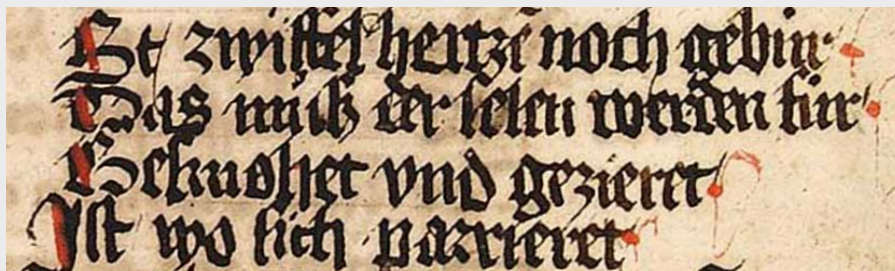 St zwiffel hertze noch gebur
Das muß der selen werden sur
Gesmohet vnd gezieret
Ist wo sich parrieret